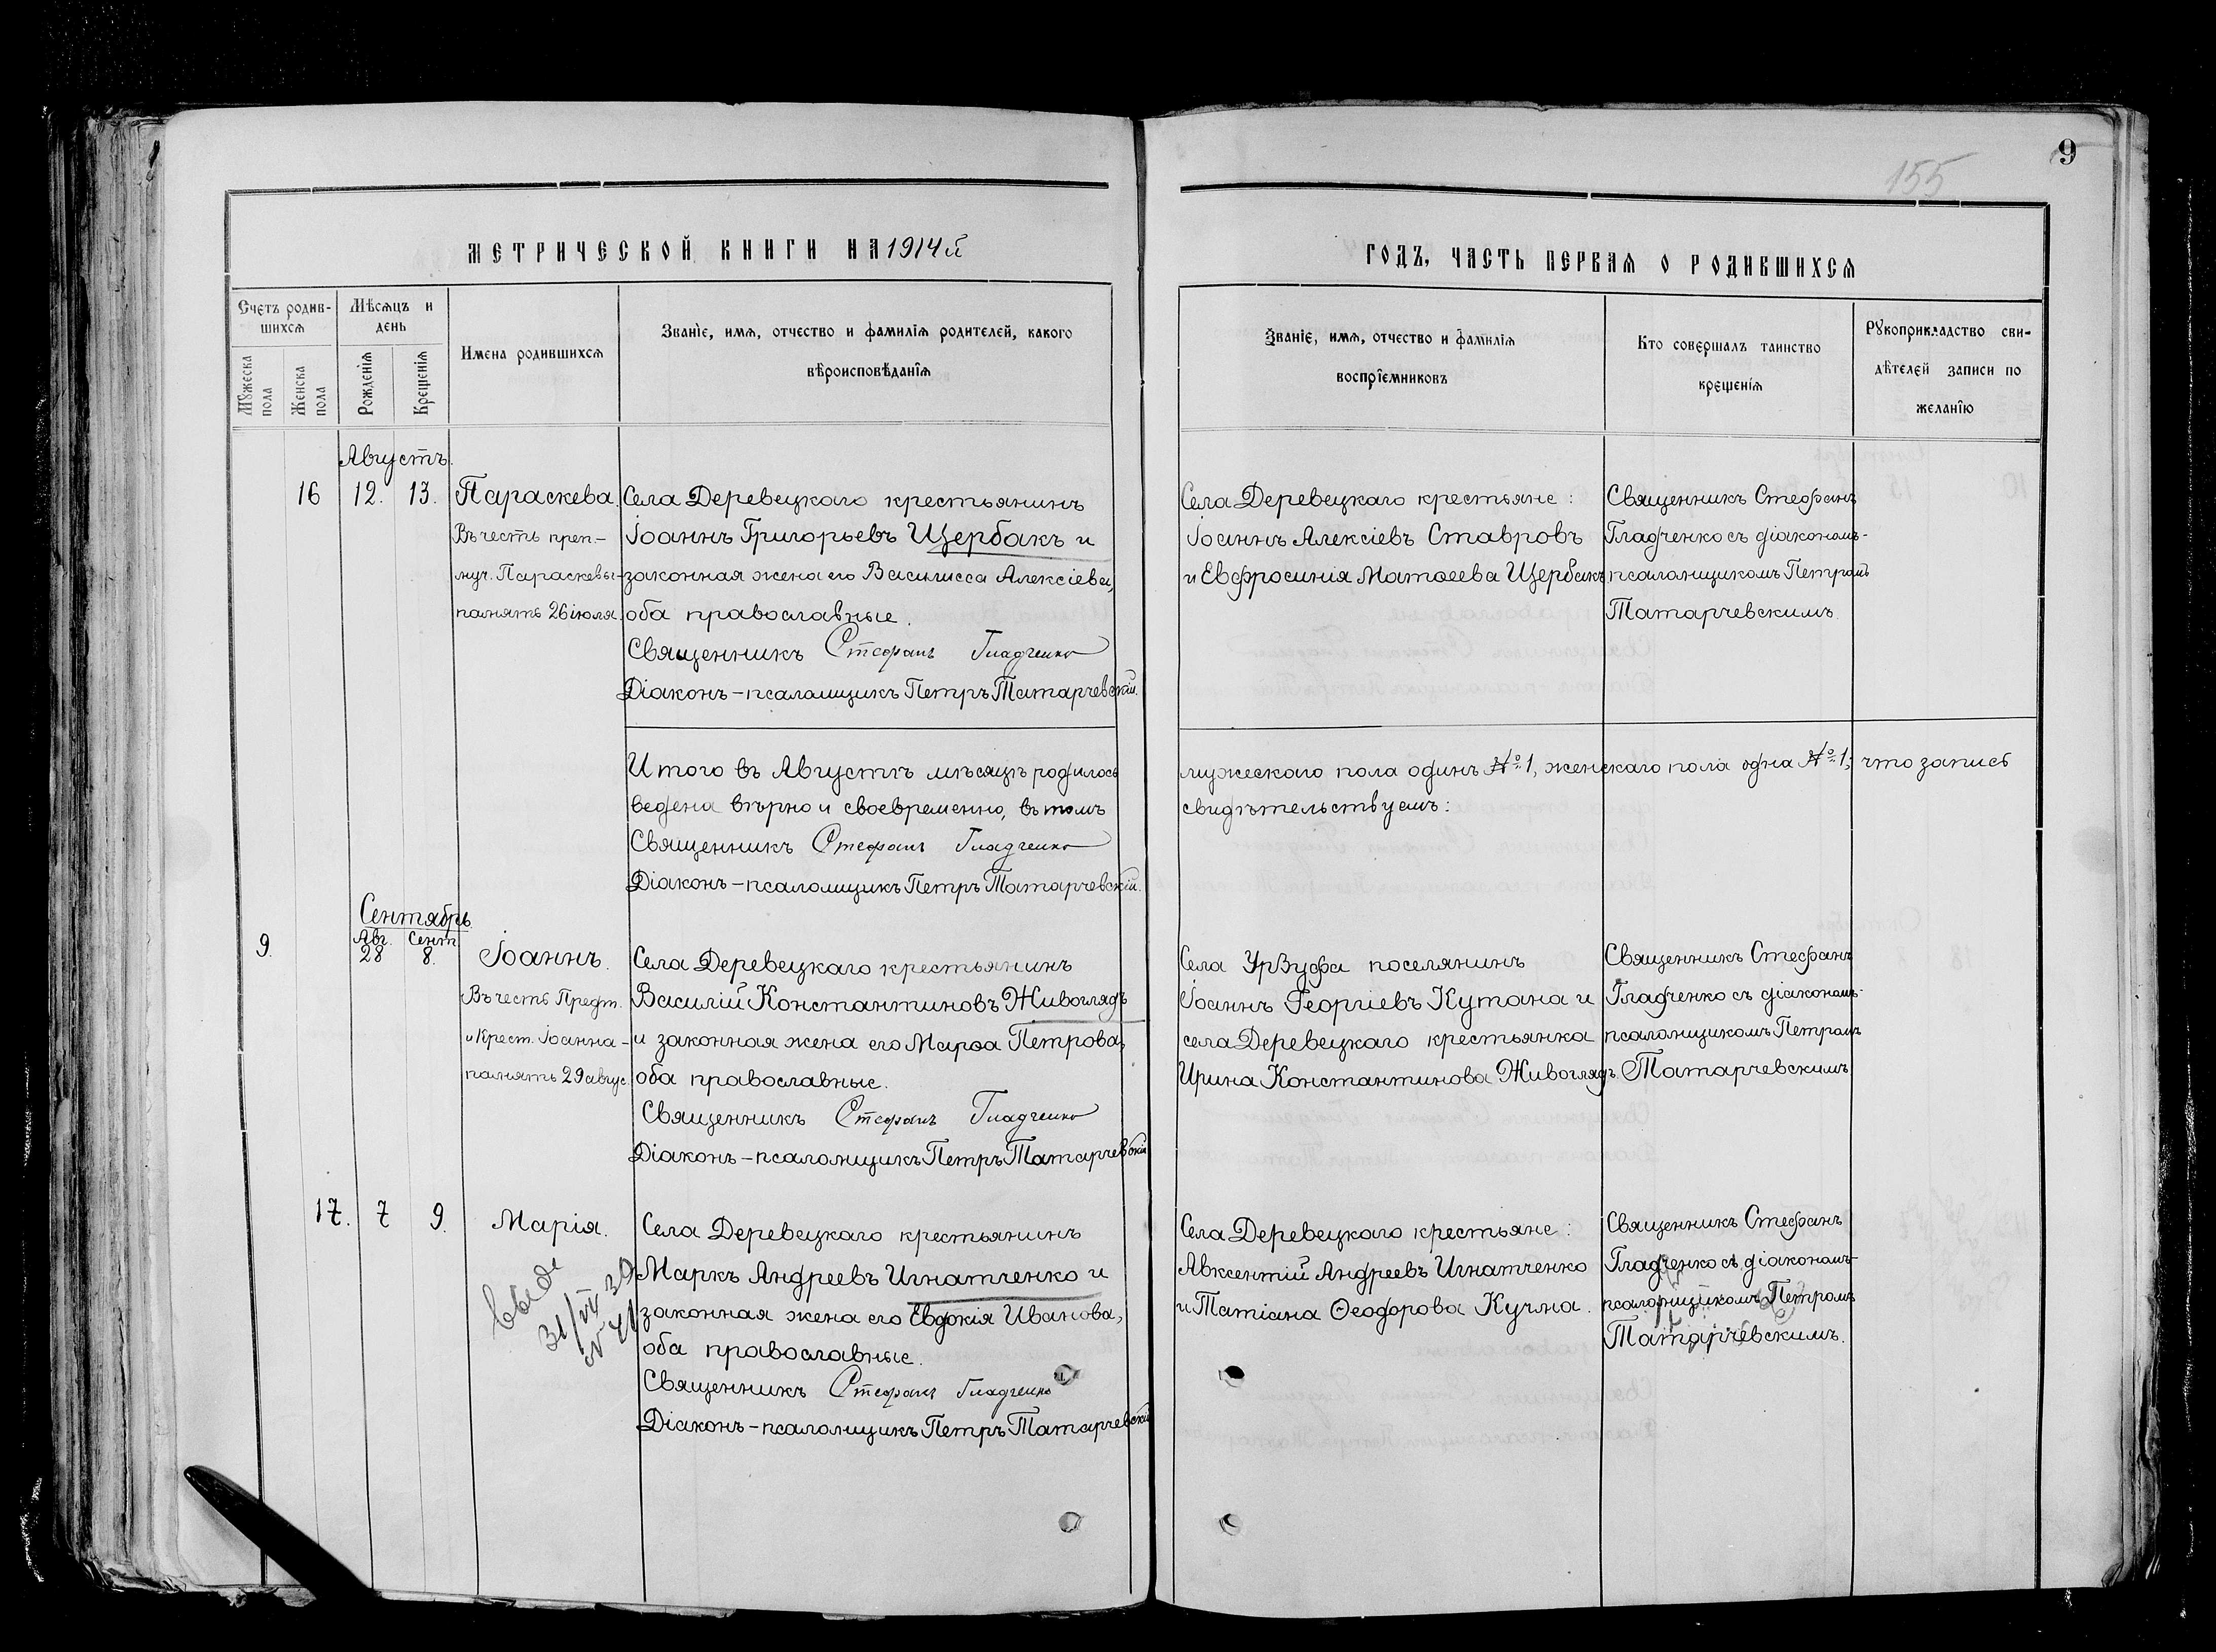 9
155
МЕТРИЧЕСКОЙ КНИГИ НА 1914й
ГОДЪ, ЧАСТЬ ПЕРВАЯ О РОДИВШИХСЯ
Счетъ родив-
шихся
Мѣсяцъ и
день
Мужеска
пола
Женска
пола
Рожденія
Крещенія
Имена родившихся
Званіе, имя, отчество и фамилія родителей, какого
вѣроисповѣданія
Званіе, имя, отчество и фамилія
воспріемниковъ
Кто совершалъ таинство
крещенія
Рукоприкладство сви-
дѣтелей записи по
желанію
Августъ.
16
12.
13.
Параскева.
Въ честь преп.-
муч. Параскевы-
память 26 іюля.
Села Деревецкаго крестьянинъ
Іоаннъ Григорьевъ Щербакъ и
законная жена его Василисса Алексіева,
оба православные.
Священникъ Стефанъ Гладченко
Діаконъ-псаломщикъ Петръ Татарчевскій.
Села Деревецкаго крестьяне:
Іоаннъ Алексіевъ Ставровъ
и Евфросинія Матѳеева Щербакъ.
Священникъ Стефанъ
Гладченко съ діакономъ-
псаломщикомъ Петромъ
Татарчевскимъ.
Итого въ Августѣ мѣсяцѣ родилось
мужескаго пола одинъ № 1, женскаго пола одна № 1; что запись
ведена вѣрно и своевременно, въ томъ
свидѣтельствуемъ:
Священникъ Стефанъ Гладченко
Діаконъ-псаломщикъ Петръ Татарчевскій.
Сентябрь
9.
Авг.
28
Сент.
8.
Іоаннъ.
Въ честь Предт.
и Крест. Іоанна-
память 29 авгус.
Села Деревецкаго крестьянинъ
Василій Константиновъ Живоглядъ
и законная жена его Марѳа Петрова,
оба православные.
Священникъ Стефанъ Гладченко
Діаконъ-псаломщикъ Петръ Татарчевскій
Села Урзуфа поселянинъ
Іоаннъ Георгіевъ Кутана и
села Деревецкаго крестьянка
Ирина Константинова Живоглядъ.
Священникъ Стефанъ
Гладченко съ діакономъ-
псаломщикомъ Петромъ
Татарчевскимъ
17.
7
9.
Марія.
Села Деревецкаго крестьянинъ
Маркъ Андреевъ Игнатченко и
законная жена его Евдокія Иванова,
оба православные.
Священникъ Стефанъ Гладченко
Діаконъ-псаломщикъ Петръ Татарчевскій
Села Деревецкаго крестьяне:
Авксентій Андреевъ Игнатченко
и Татіана Ѳеодорова Кучма.
Священникъ Стефанъ
Гладченко съ діакономъ-
псаломщикомъ Петромъ
Татарчевскимъ.